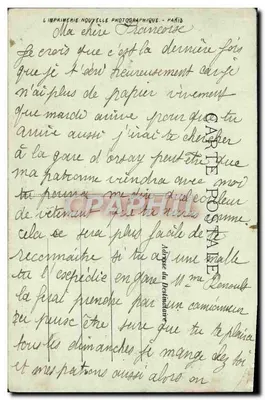 L'IMPRIMERIE NOUVELLE PHOTOGRAPHIQUE - PARIS
Ma chère Françoise
Je crois que c'est la dernière fois
que je t'écri heureusement car je
n'ai plus de papier vivement
que mardi arrive pour que tu
arrive aussi j'irai te chercher
à la gare d'orsay peut être que
ma patronne viendra avec moi
tu pourra me dire la couleur
de vêtement que tu comme
cela ce sera plus facile de te
reconnaitre si tu a une malle
tu l'expédie en gare Mme Renault
la ferai prendre par un camionneur
tu peusc être sure que tu te plaira
tous les dimanches je mange chez toi
et mes patrons aussi alors on
CARTE POSTALE
Adresse du Destinataire